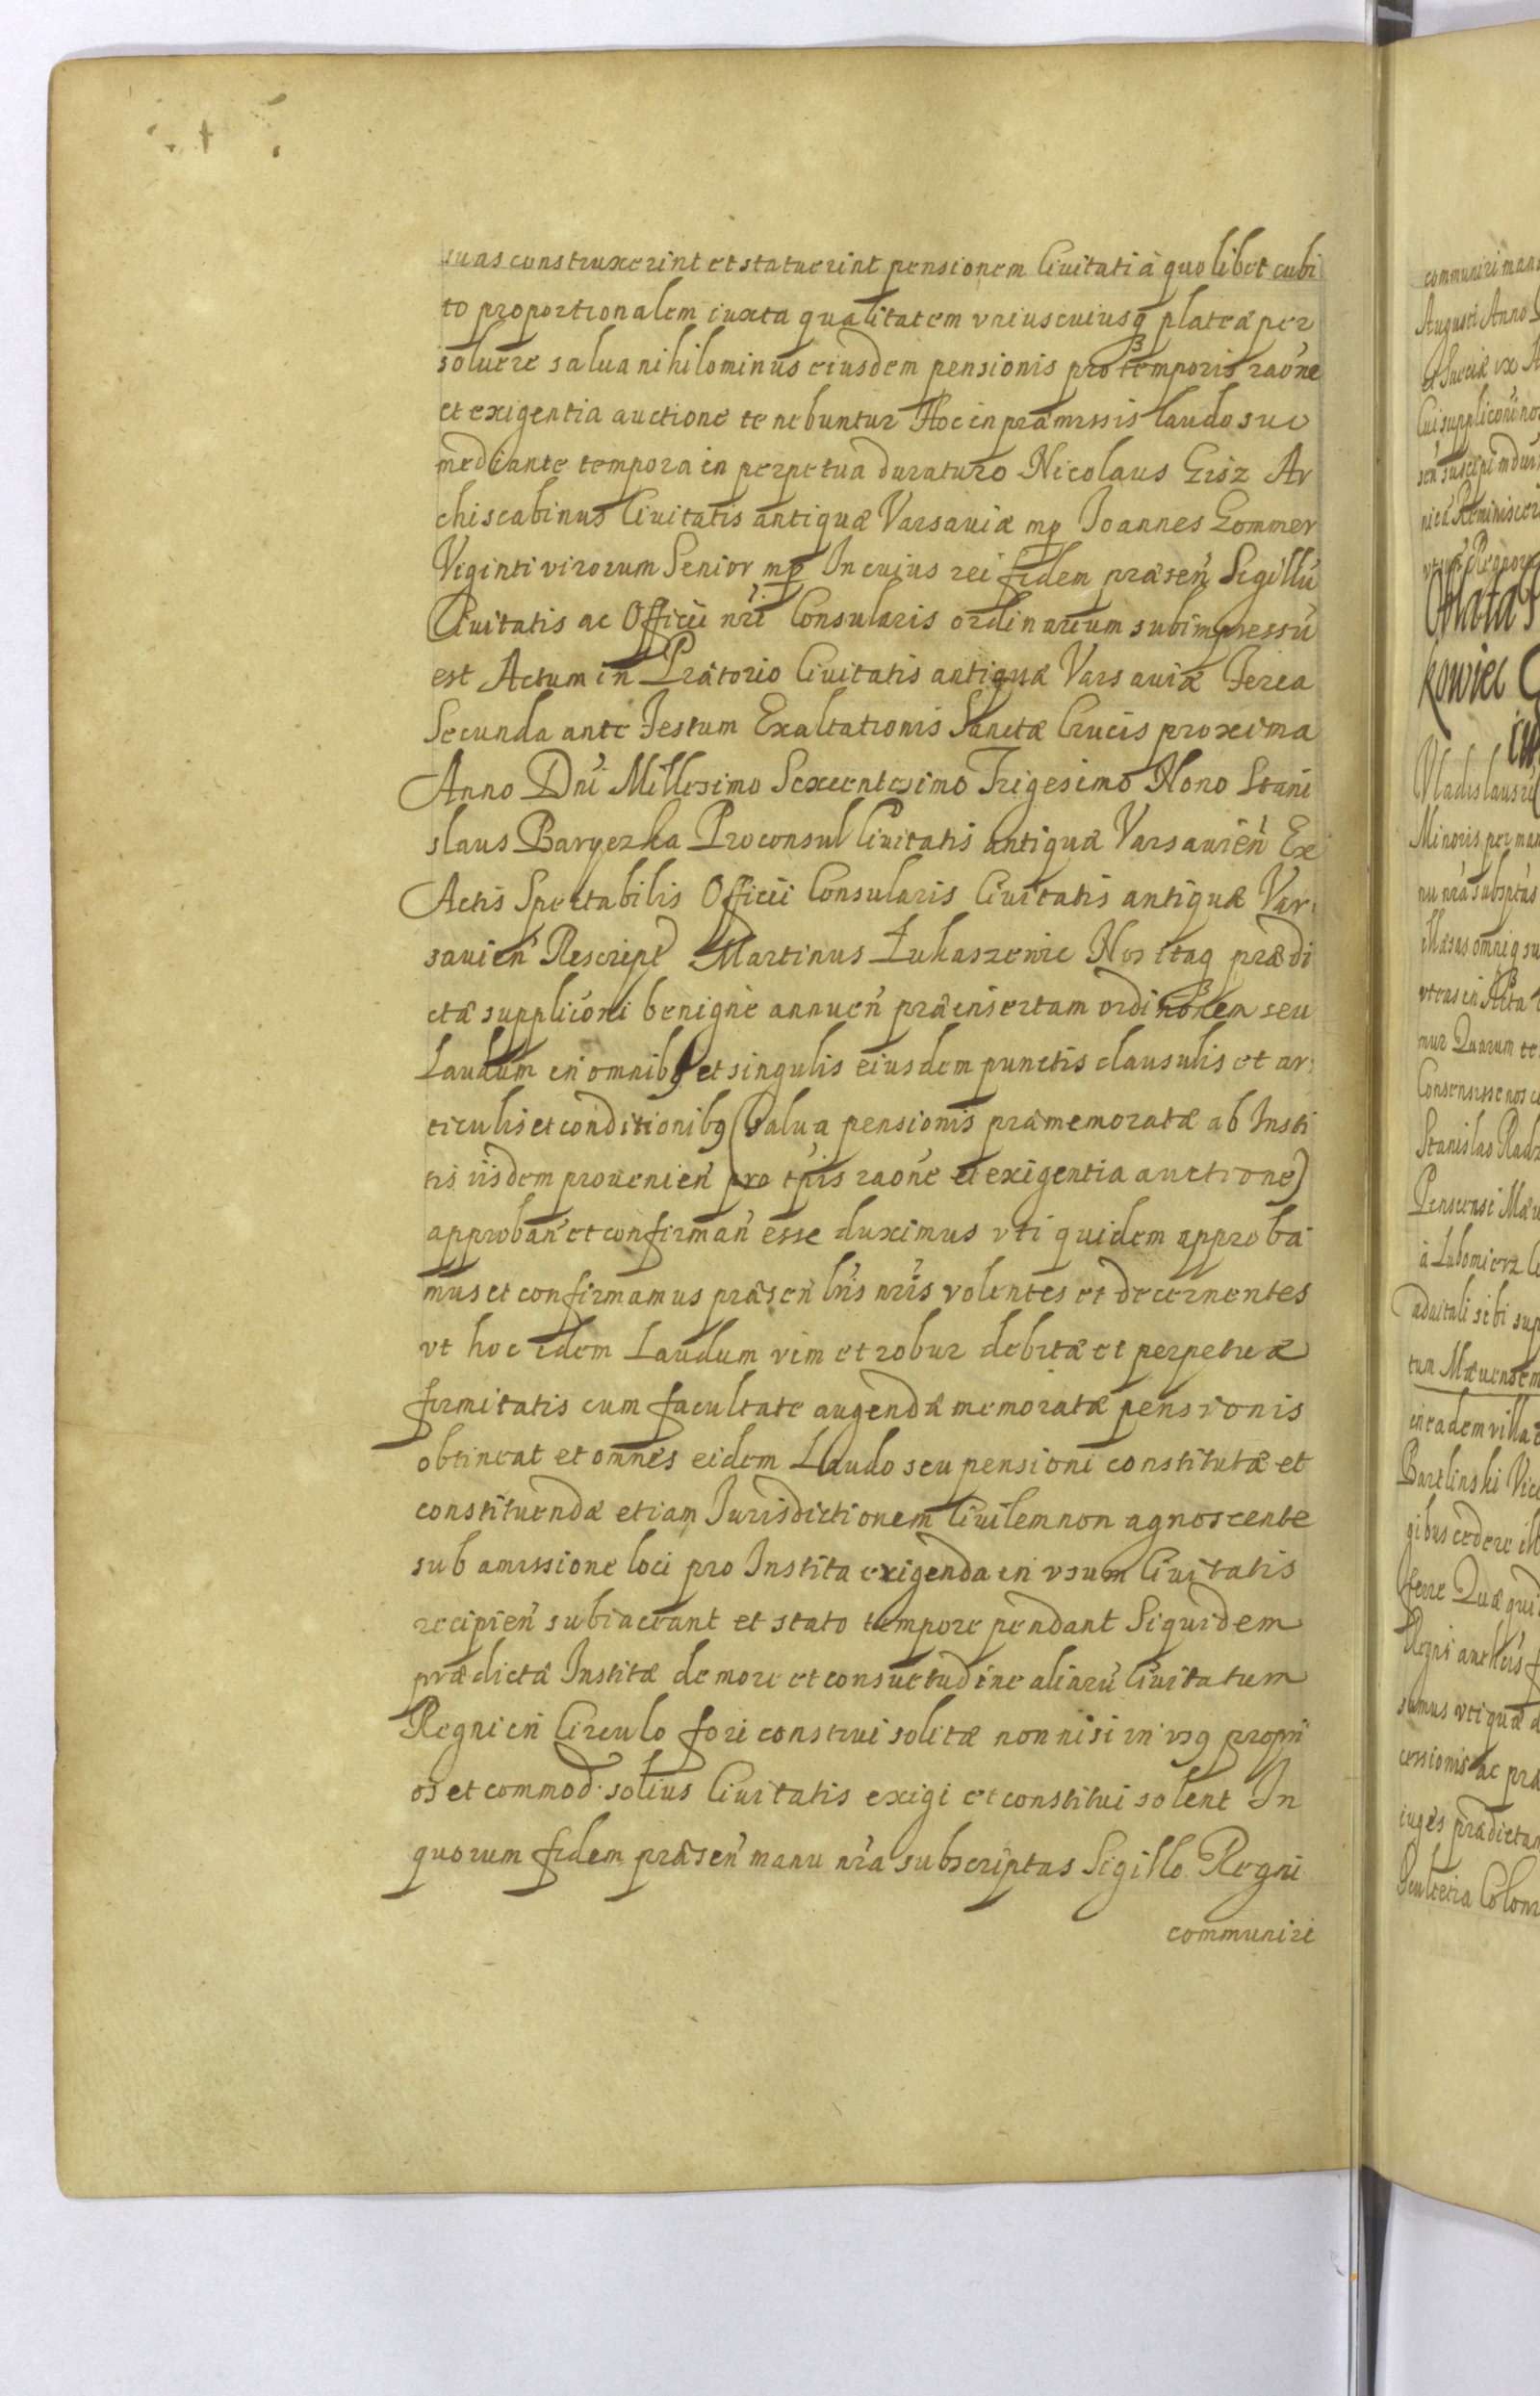 suas construxerint et statuerint pensionem Civitati à quolibet cubi
to proportionalem iuxta qualitatem vniuscuiusq plateæ per
soluere salua nihilominus eiusdem pensionis pro temporis raōne
et exigentia auctione tenebuntur Hoc in præmissis laudo suo
mediante tempora in perpetua duraturo Nicolaus Gisz Ar
chiscabinus Civitatis antiquæ Varsaviæ mp Joannes Gommer
Viginti virorum Senior mp In cuius rei fidem præsen̄ Sigillū
Civitatis ac Officii nrī Consularis ordinarium subimpressū
est Actum in Prætorio Civitatis antiquæ Varsaviæ Feria
Secunda ante Festum Exaltationis Sanctæ Crucis proxima
Anno Dnī Millesimo Sexcentesimo Trigesimo Nono Stani
slaus Baryczka Proconsul Civitatis antiquæ Varsavien̄ Ex
Actis Spectabilis Officii Consularis Civitatis antiquæ Var
savien̄ Rescript Martinus Łukaszewic Nos itaq prædi
ctæ supplicōni benignè annuen̄ præinsertam ordinōnem seu
Laudum in omnibq et singulis eiusdem punctis clausulis et ar
ticulis et conditionibq (Salua pensionis præmemoratæ ab Insti
tis iisdem provenien̄ pro tpīs raōne et exigentia auctione)
approban̄ et confirman̄ esse duximus vti quidem approba
mus et confirmamus præsen̄ lrīs nrīs volentes et decernentes
vt hoc idem Laudum vim et robur debitæ et perpetuæ
firmitatis cum facultate augendæ memoratæ pensionis
obtineat et omnes eidem Laudo seu pensioni constitutæ et
constituendæ etiam Jurisdictionem Civilem non agnoscente
sub amissione loci pro Instita exigenda in vsum Civitatis
recipien̄ subiaceant et stato tempore pendant Siquidem
prædictæ Institæ de more et consuetudine aliarū Civitatum
Regni in Circulo fori construi solitæ non nisi in vsq propri
os et commod. solius Civitatis exigi et constitui solent In
quorum fidem præsen̄ manu nrā subscriptas Sigillo Regni
communiri
communiri
Augusti Anno
Minoris per man
Quarum
Consensisse nos
Stanislao
à Lubomierz
tum Mævensem
in eadem villa
gibus cedere
ferre Quæ
cessionis ac
iuges prædictam